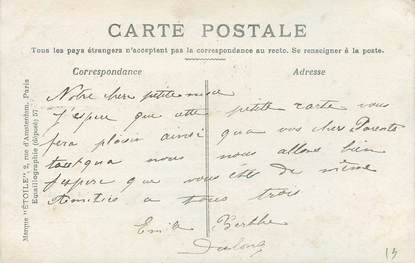 CARTE POSTALE
Tous les pays étrangers n'acceptent pas la correspondance au recto. Se renseigner à la poste.
Correspondance
Adresse
Marque "ÉTOILE" 2, rue d'Amsterdam, Paris
Notre chere petite niece
J'espere que cette petite carte vous
fera plaisir ainsi qua vos chers Parents
qua nous nous allons bien
J'espere que vous êtes de même
Amities a tous trois
Emile Berthe
13